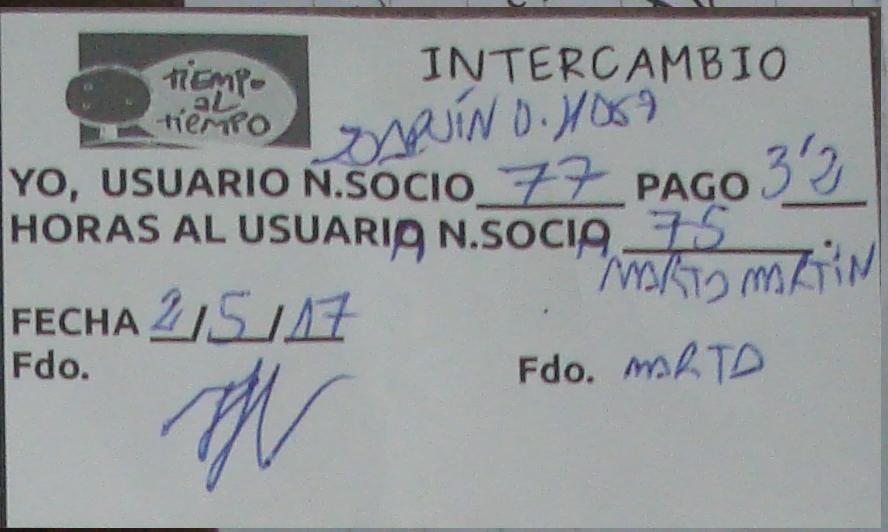 tiEMPO
aL
tiempo
INTERCAMBIO
JOAQUÍN D.
YO, USUARIO N.SOCIO 77 PAGO 3'2
HORAS AL USUARIA N.SOCIA 75.
MARTA MARTíN
FECHA 2/5/17
Fdo.
Fdo. MARTA